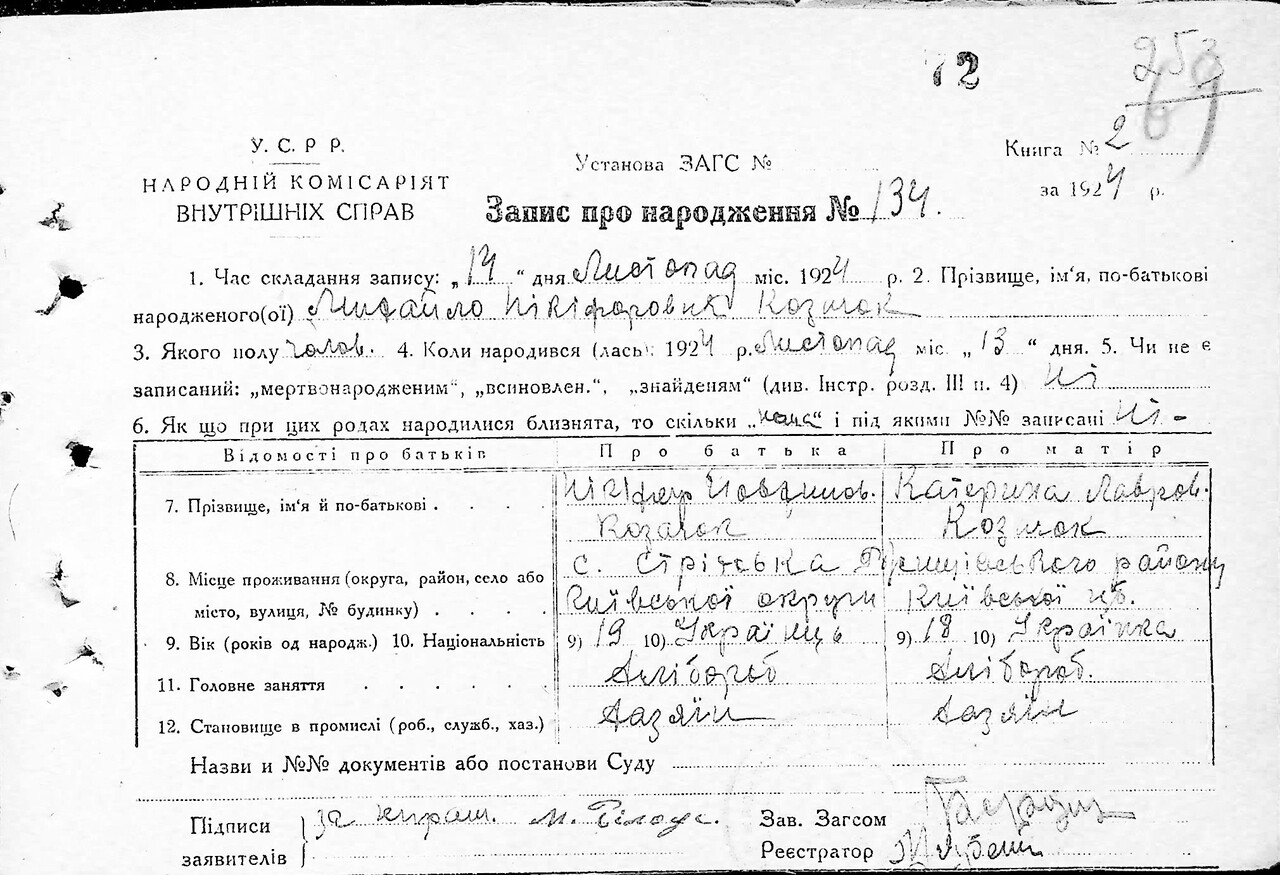 72
253
У. С. Р Р.
Установа ЗАГС №
Книга № 2
НАРОДНІЙ КОМІСАРІЯТ
ВНУТРІШНІХ СПРАВ
за 1924 р.
Запис про народження № 134.
1. Час складання запису: „14 “ дня Листопад міс. 1924 р. 2. Прізвище, ім'я, по-батькові
народженого(ої) Михайло Нікіфорович Козачок
3. Якого полу чолов. 4. Коли народився (лась): 1924 р. Листопад міс „ 13 “ дня. 5. Чи не є
записаний: „мертвонародженим“, „всиновлен.“, „знайденям“ (див. Інстр. розд. III п. 4) Ні
6. Як що при цих родах народилися близнята, то скільки „нема“ і під якими №№ записані Ні -
Відомості про батьків Про батька Про матір
7. Прізвище, ім'я й по-батькові . . . . Нікіфор Йовдимов. Катерина Лавров.
Козачок Козачок
8. Місце проживання (округа, район, село або с. Стрітовка району
місто, вулиця, № будинку) . . . . Київської округи Київської
9. Вік (років од народж.) 10. Національність 9) 19 10) Українець 9) 18 10) Українка
11. Головне заняття . . . . . . Хлібороб Хлібороб.
12. Становище в промислі (роб., служб., хаз.) Хазяїн Хазяїн
Назви и №№ документів або постанови Суду
Підписи за м.
заявителів
Зав. Загсом
Реєстратор